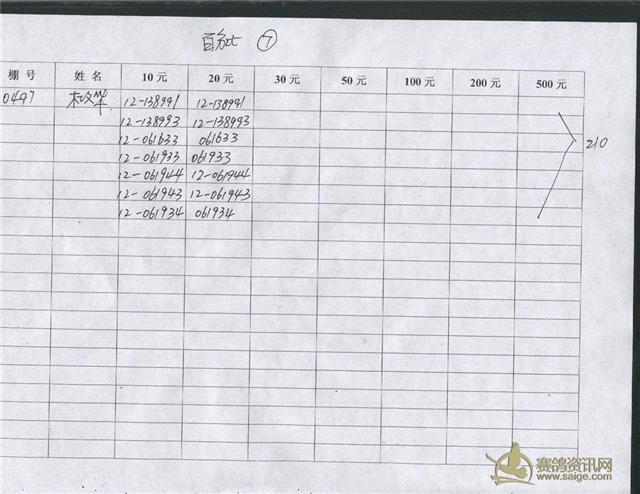 百分七 ⑦
棚号 姓名 10元 20元 30元 50元 100元 200元 500元
0497 12-138991 12-138991
12-138993 12-138993
12-061633 061633
12-061933 061933 210
12-061944 12-061944
12-061943 12-061943
12-061934 061934
赛鸽资讯网
www.saige.com